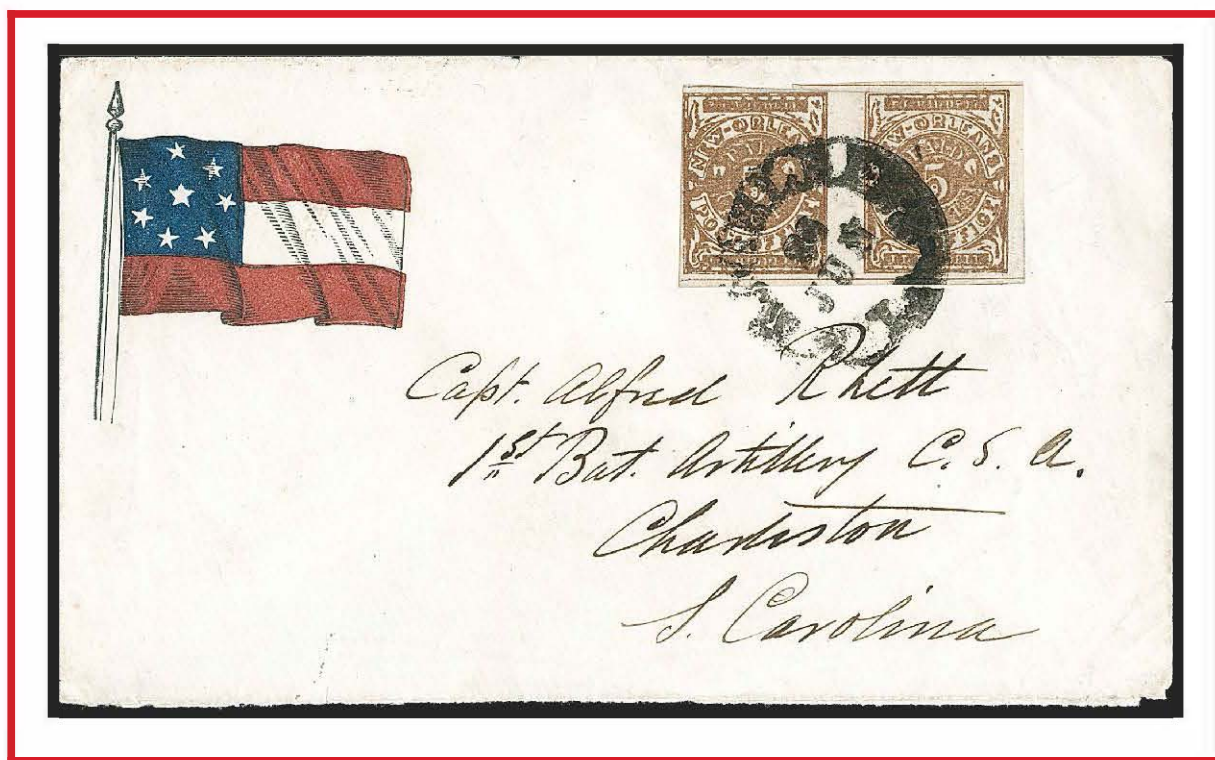 NEW-ORLEANS
POST OFFICE
NEW-ORLEANS
5
OFFICE
Capt. Alfred Rhett
1st Bat. Artillery C. S. A.
Charleston
S. Carolina